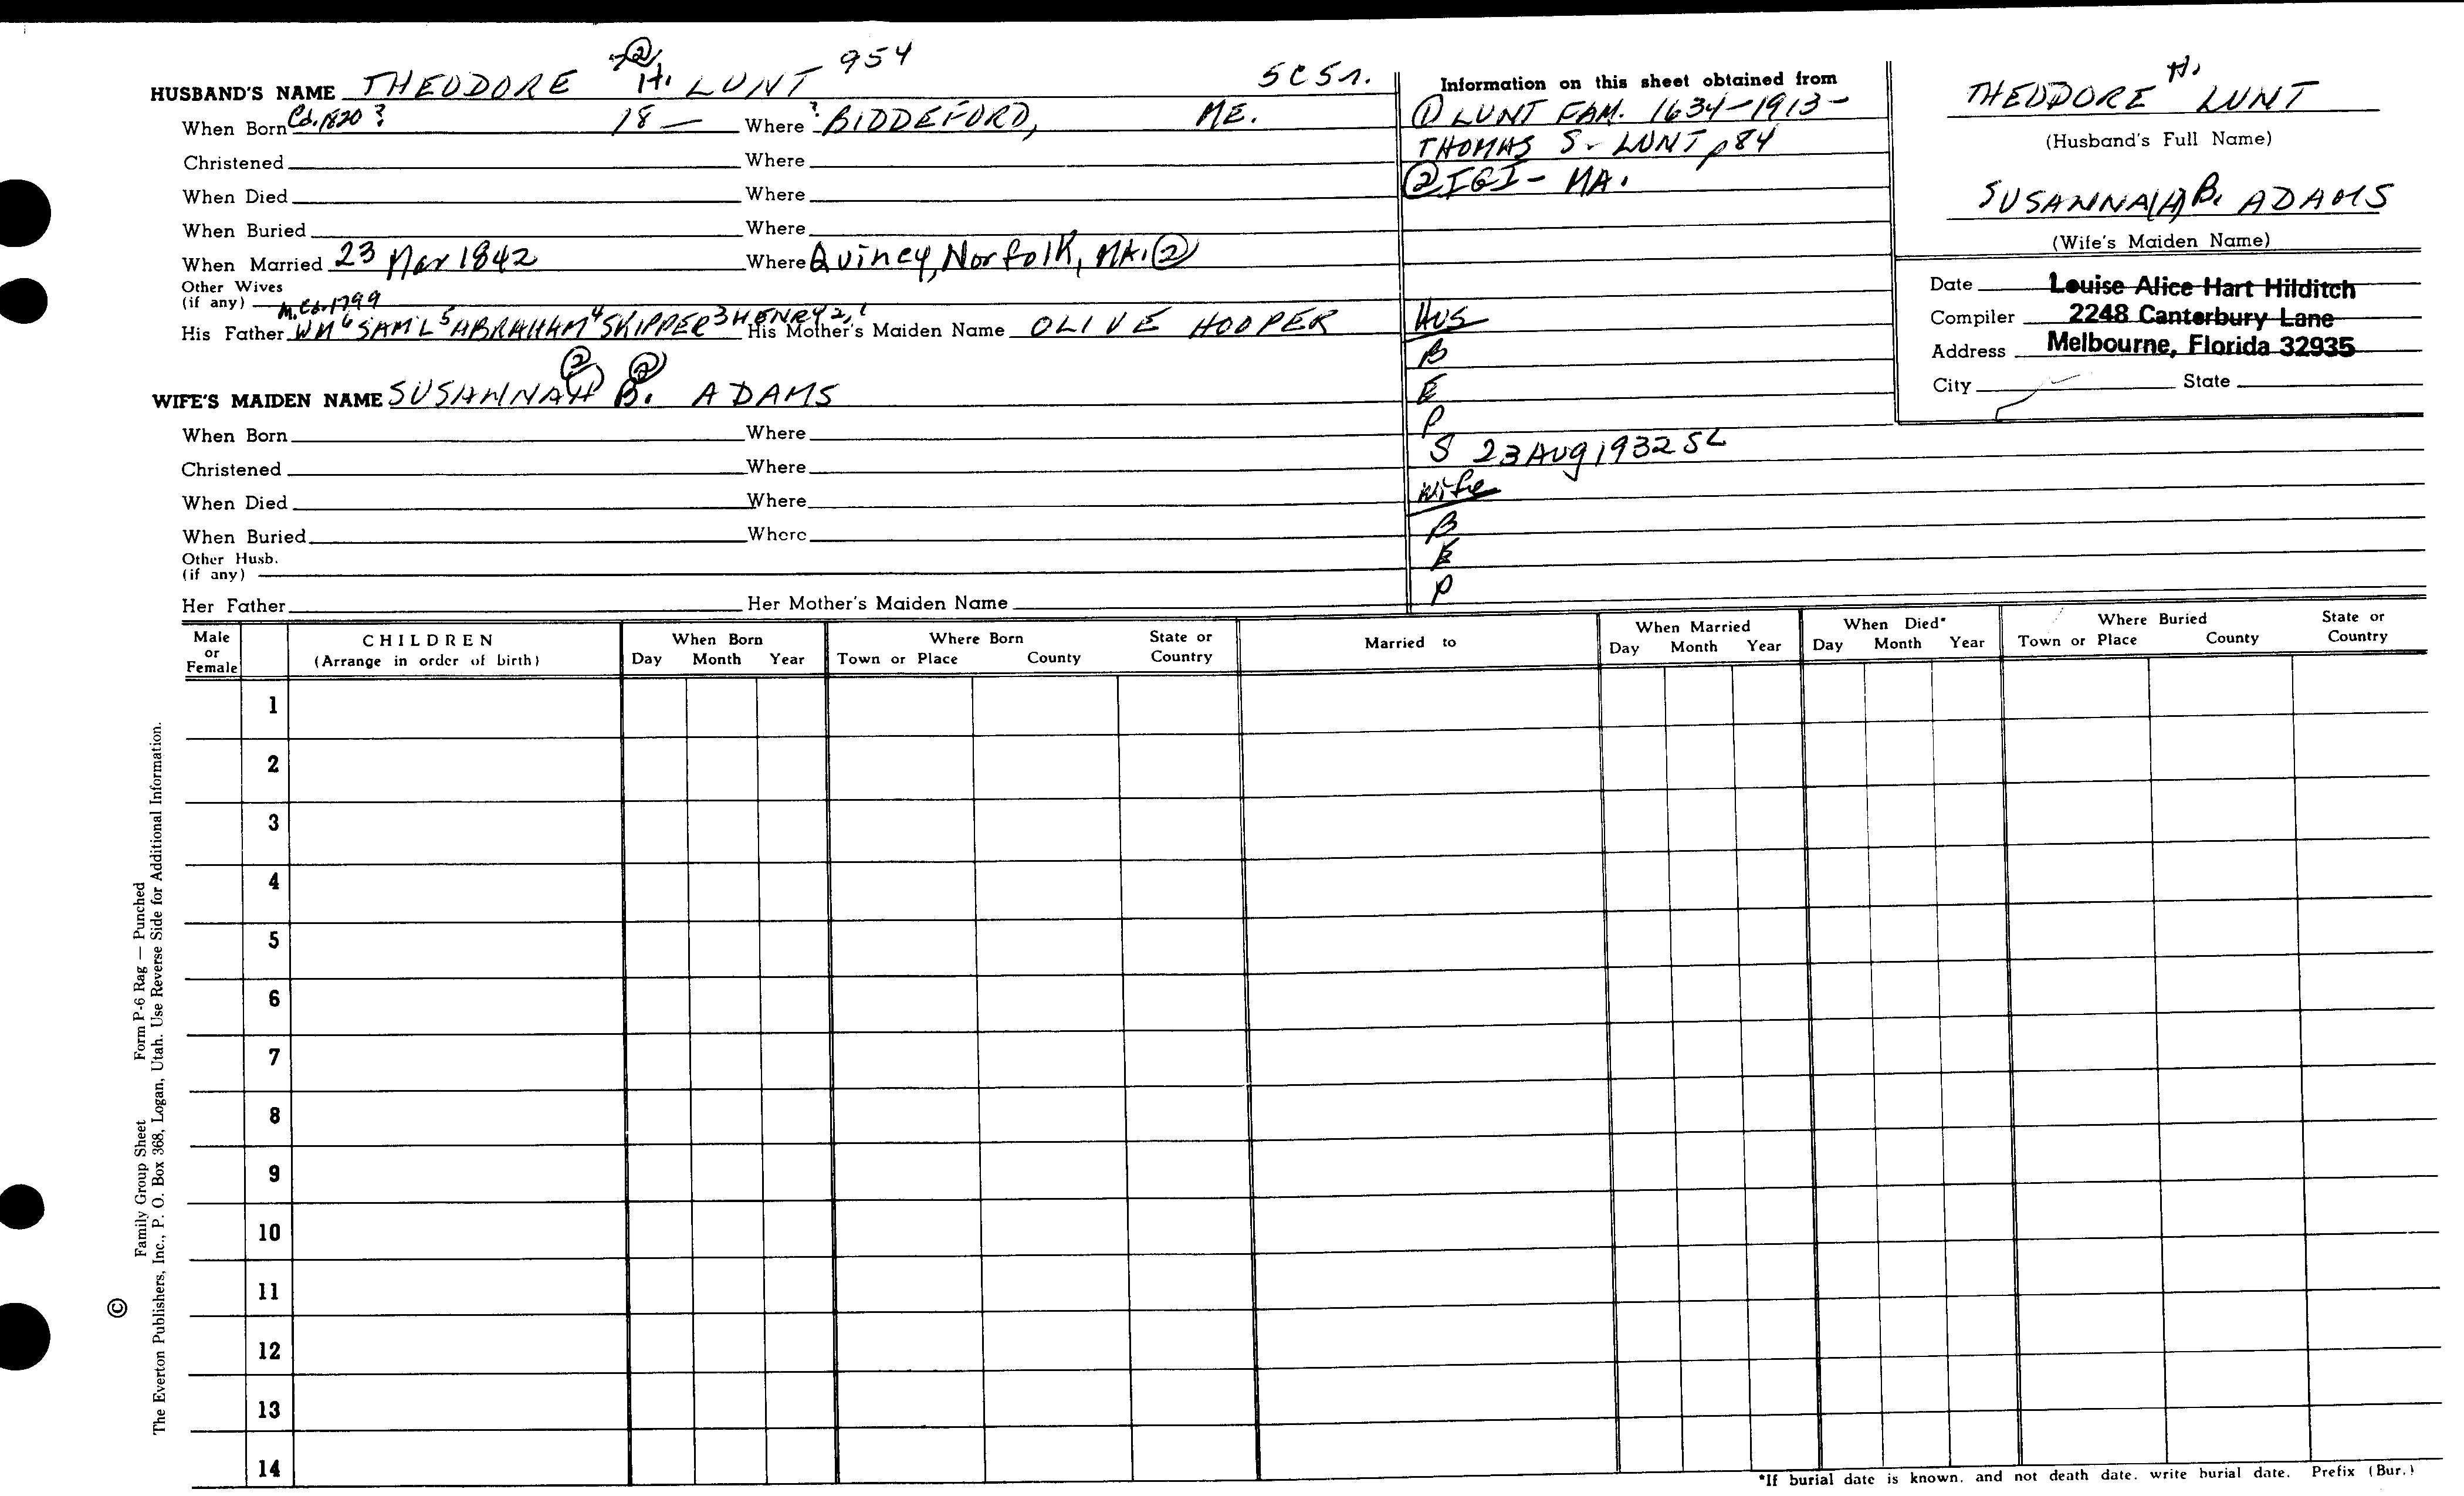 ② 954
HUSBAND'S NAME THEODORE H. LUNT 5C51.
When Born Cd. 1820? 18— Where ? BIDDEFORD, ME.
Christened Where
When Died Where
When Buried Where
When Married 23 Mar 1842 Where Quincy, Norfolk, MA. ②
Other Wives
(if any) M. Cd. 1799
His Father WM⁶ SAM'L⁵ ABRAHAM⁴ SKIPPER³ HENRY²,¹ His Mother's Maiden Name OLIVE HOOPER
② ②
WIFE'S MAIDEN NAME SUSANNAH B. ADAMS
When Born Where
Christened Where
When Died Where
When Buried Where
Other Husb.
(if any)
Her Father Her Mother's Maiden Name
Information on this sheet obtained from
① LUNT FAM. 1634-1913-
THOMAS S. LUNT p84
② IGI - MA.
HUS
B
E
P
S 23 Aug 1932 SL
Wife
B
E
P
THEODORE H. LUNT
(Husband's Full Name)
SUSANNA(H) B. ADAMS
(Wife's Maiden Name)
Date Louise Alice Hart Hilditch
Compiler 2248 Canterbury Lane
Address Melbourne, Florida 32935
City State
Male
or
Female
CHILDREN
(Arrange in order of birth)
When Born
Day Month Year
Where Born
Town or Place County
State or
Country
Married to
When Married
Day Month Year
When Died*
Day Month Year
Where Buried
Town or Place County
State or
Country
1
2
3
4
5
6
7
8
9
10
11
12
13
14
© Family Group Sheet Form P-6 Rag — Punched
The Everton Publishers, Inc., P. O. Box 368, Logan, Utah. Use Reverse Side for Additional Information.
*If burial date is known, and not death date, write burial date. Prefix (Bur.)